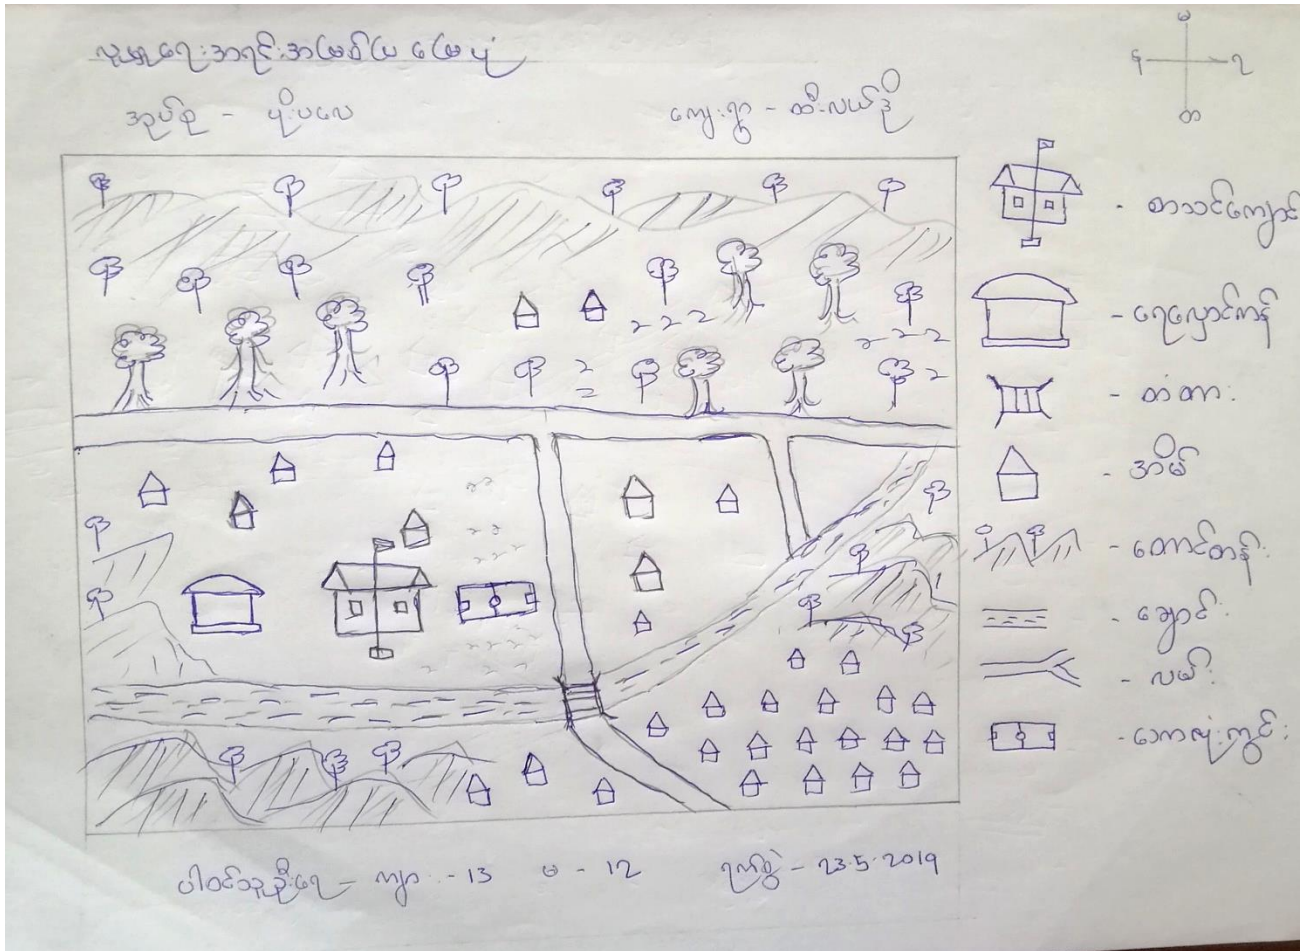 လူမှုရေးအရင်းအမြစ်ပြ မြေပုံ
အုပ်စု - ပိုးပလေ ကျေးရွာ - ထီးလယ်ဒို
မ
န ရ
တ
စာသင်ကျောင်း
- ရေလှောင်ကန်
- တံတား
- အိမ်
- တောင်တန်း
- ချောင်း
- လမ်း
- ဘောလုံးကွင်း
ပါဝင်သူဦးရေ - ကျား - 13 မ - 12 ရက်စွဲ - 23.5.2019